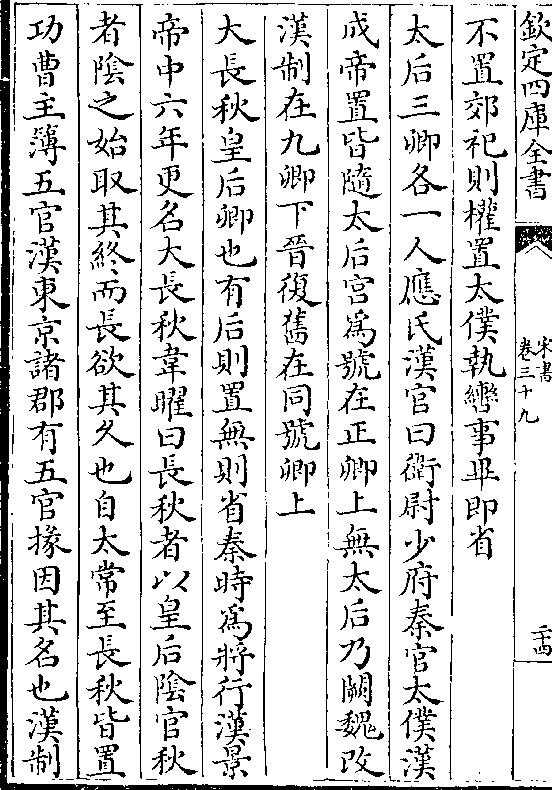 欽定四庫全書
宋書
卷三十九
二十四
不置郊祀則權置太僕執轡事畢即省
太后三卿各一人應氏漢官曰衛尉少府秦官太僕漢
成帝置皆隨太后宮為號在正卿上無太后乃闕魏改
漢制在九卿下晉復舊在同號卿上
大長秋皇后卿也有后則置無則省秦時為將行漢景
帝中六年更名大長秋韋曜曰長秋者以皇后陰官秋
者陰之始取其終而長欲其久也自太常至長秋皆置
功曹主簿五官漢東京諸郡有五官掾因其名也漢制